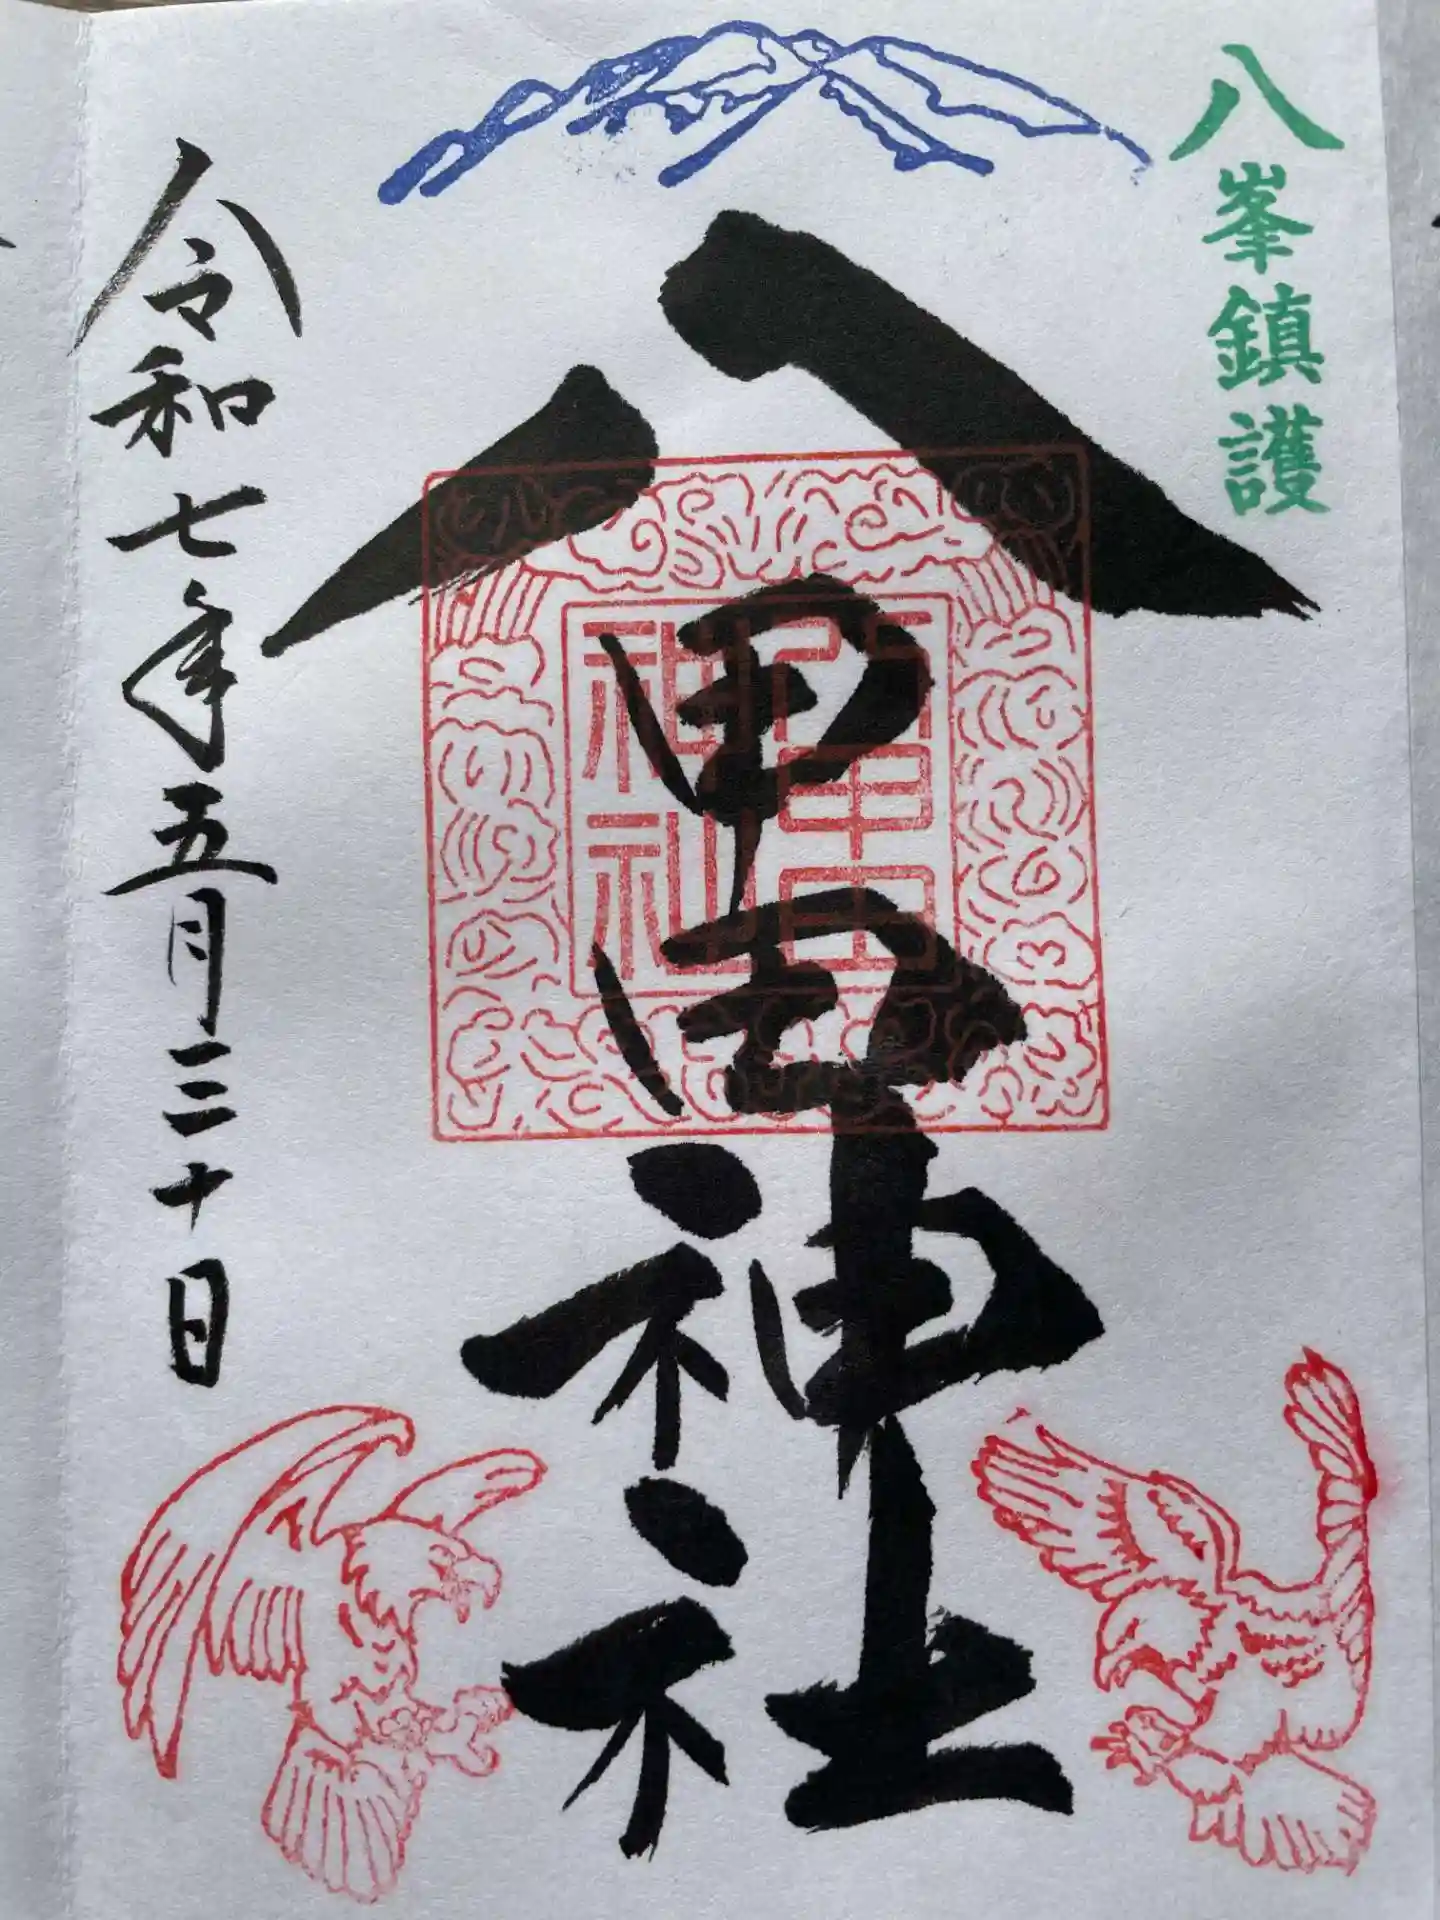 八峯鎮護
八甲田神社
八甲田
神社
令和七年五月三十日